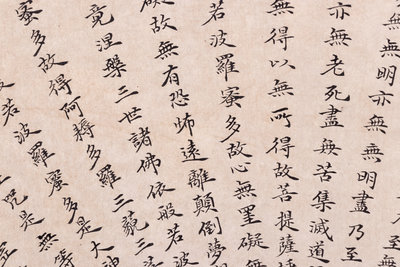 至
無無明亦無無明盡乃至
亦無老死盡無苦集滅道
無得以無所得故菩提薩埵
若波羅蜜多故心無罣礙無
礙故無有恐怖遠離顛倒夢
竟涅槃三世諸佛依般若波
蜜多故得阿耨多羅三藐三
若波羅蜜多是大神
咒是無等